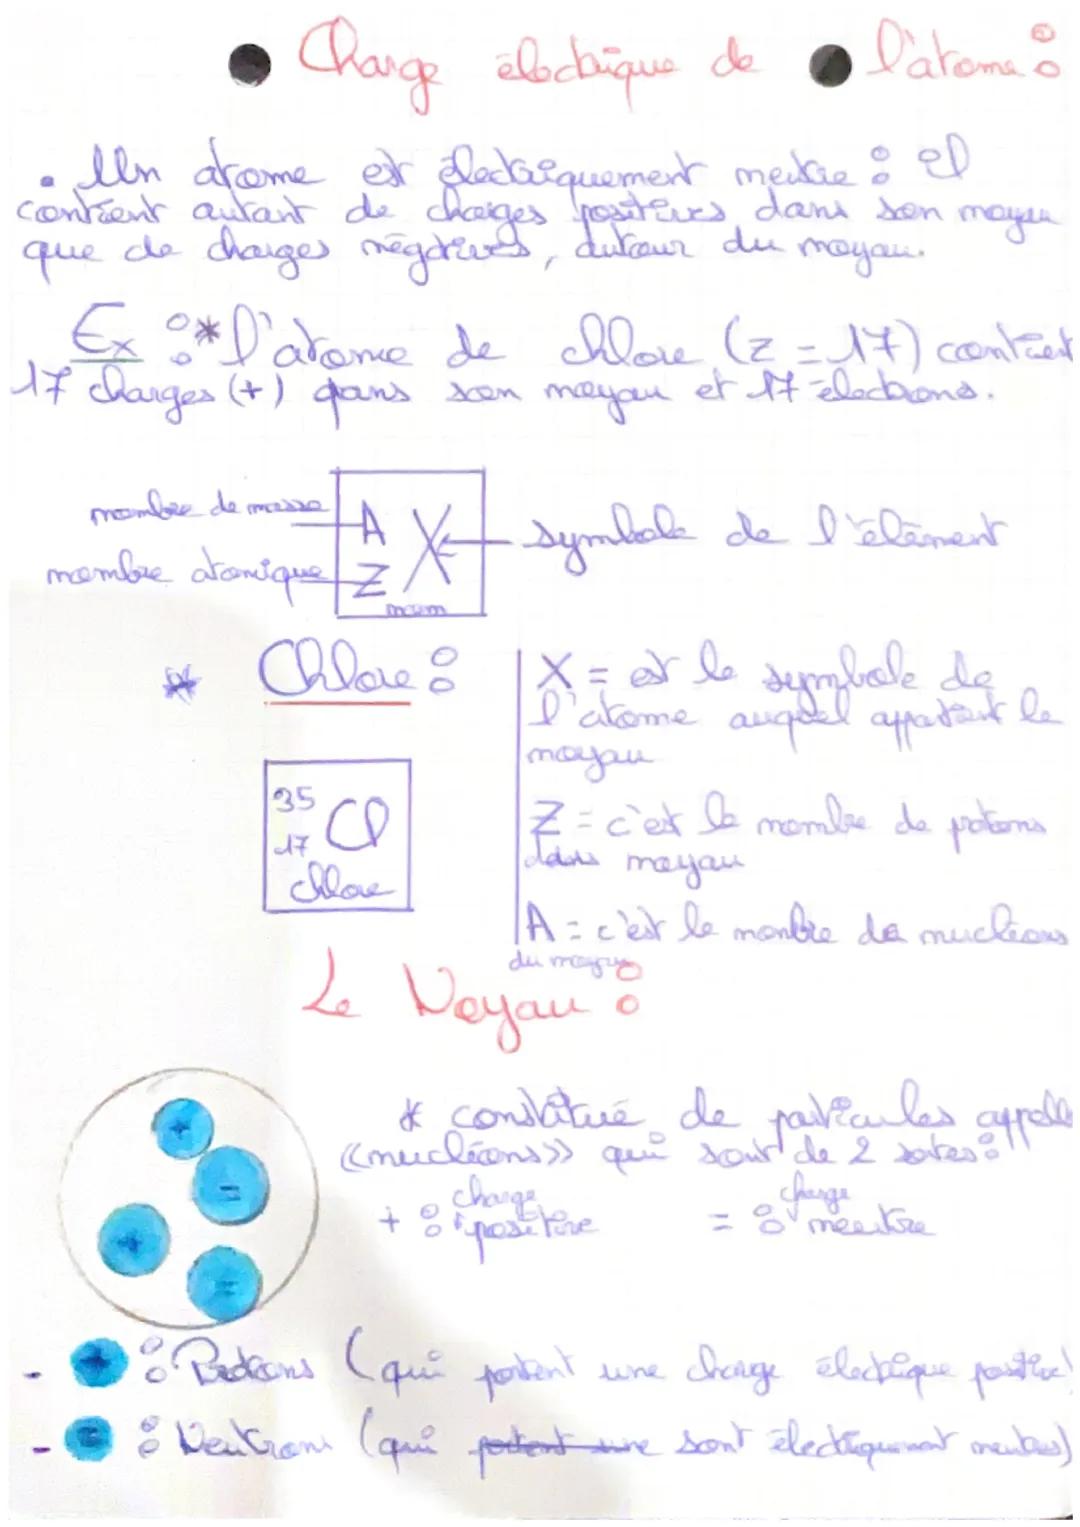 Charge électrique de l'atome :
• Un atome est électriquement neutre : il
contient autant de charges positives dans son noyau
que de charges négatives, autour du noyau.
Ex : * l'atome de chlore (Z = 17) contient
17 charges (+) dans son noyau et 17 électrons.
nombre de masse A X symbole de l'élément
nombre atomique Z
nom
* Chlore :
35
17 Cl
chlore
X = est le symbole de
l'atome auquel appartient le
noyau
Z = c'est le nombre de protons
dans noyau
A = c'est le nombre de nucléons
du noyau
Le Noyau :
* constitué de particules appelle
«nucléons» qui sont de 2 sortes :
+ : charge positive = : charge neutre
+
=
+
=
- + : Protons (qui portent une charge électrique positive)
- = : Neutrons (qui portent une sont électriquement neutres)